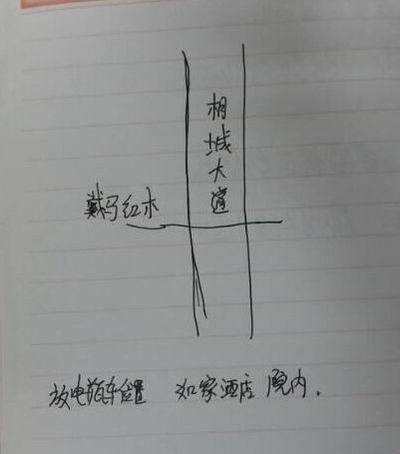 相城大道
戴马红木
放电瓶车位置 如家酒店 院内.